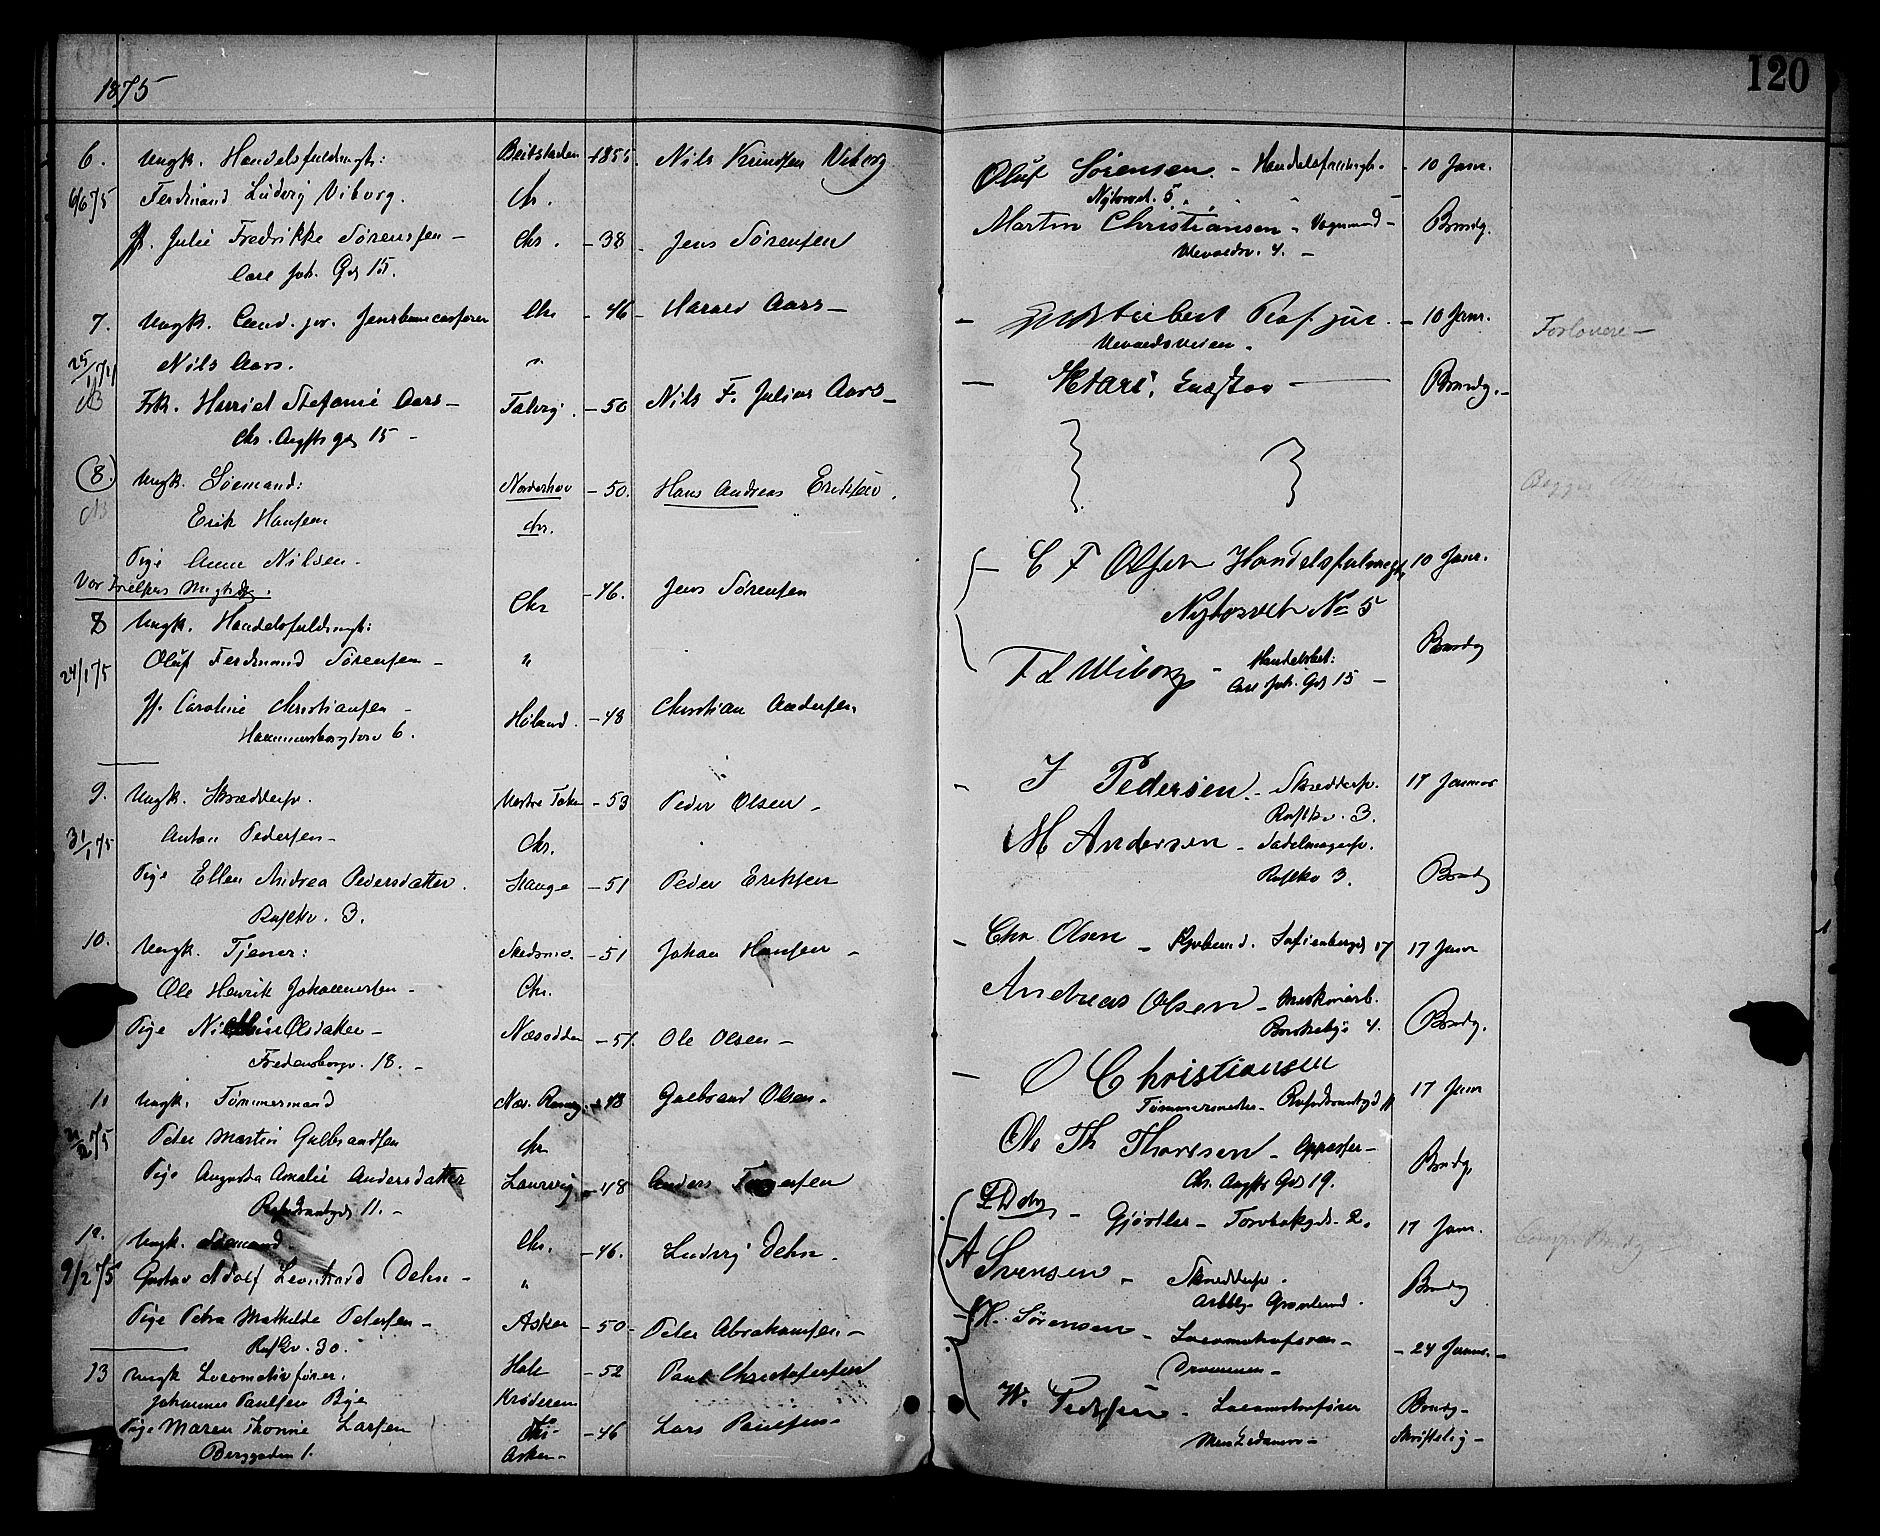 120
1875
6. Ungk. Handelsfuldmgt: Beitstaden -1855. Nils Knudsen Viborg
6/6 75 Ferdinand Ludvig Viborg. Chr.
Jf. Julie Fredrikke Sørensen - Chr. -38 Jens Sørensen
Carl Joh. Gd 15.
7. Ungk. Cand. jur. Chr -46 Harald Aars -
25/1 71 Nils Aars. "
Frk. Harriet Stefanie Aars - Talvig. -50 Nils F. Julius Aars -
Chr. Augsts gd 15 -
8. Ungk. Sømand: Norderhov -50. Hans Andreas Eriksen.
Erik Hansen Chr.
Pige Anne Nilsen.
Vor Frelsers Mgthd.
8 Ungk. Handelsfuldmgt: Chr -46. Jens Sørensen
24/1 75 Oluf Ferdinand Sørensen - "
Jf. Caroline Christiansen - Høland. -48 Christian Andersen
Hammersborgtorv 6.
9. Ungk. Skræddersv. Vestre Toten -53 Peder Olsen -
31/1 75 Anton Pedersen - Chr.
Pige Ellen Andrea Pedersdatter. Stange -51 Peder Eriksen
Rostkv. 3.
10. Ungk. Tjener: Skedsmo. -51 Johan Hansen -
Ole Henrik Johannessen - Chr.
Pige Olsdatter - Næsodden -51. Ole Olsen -
Fredensborgv. 18. -
11 Ungk. Tømmermand Nes. -48 Gulbrand Olsen.
2/2 75 Peter Martin Gulbrandsen Chr
Pige Augusta Amalie Andersdatter Laurvig -48 Anders
11. -
12. Ungk. Sømand Chr. -46. Ludvig Dehn.
9/2 75 Gustav Adolf Leonhard Dehn - "
Pige Petra Mathilde Petersen - Asker -50 - Peter Abrahamsen -
30.
13 Ungk Locomotivfører. Hole -52 Paul Christofersen
Johannes Paulsen Bye Krøderen
Pige Maren Thonie Larsen Chr- -46 Lars Paulsen -
Berggaden 1. Asker -
Oluf Sørensen. - Handelsfuldmgt. - 10 Janr.
Nytorvet. 5.
Martin Christiansen - Vognmand - Brudg.
Ulevoldsv. 4. -
- Aubert Prof jur. - 10 Janr. Forlovere -
Ulevoldsveien.
- Brudg. -
- C F Olsen Handelsfuldmægt. 10 Janr.
Nytorvet No 5
F L Wiborg - Handelsbet: Brudg
Carl Joh. Gd 15 -
- J Pedersen. - Skræddersv. 17 Januar
3.
M Andersen - Sadelmagersv.
3. Brudg
- Chr. Olsen - Sofienberggd 17 17 Janr
Andreas Olsen - Maskinarb. Brudg.
4.
- O Christiansen 17 Janr
Tømmermester -
Ole Th Thoresen - Brudg.
Chr. Augsts Gd 19.
- Gjørtler - 2. 17 Janr.
A Svensen - Skræddersv. Brudg
Grønland.
H. Sørensen - - 24 Janr. -
Drammen -
W. Pedersen - Locomotivfører Brudg -
Skriftelig -